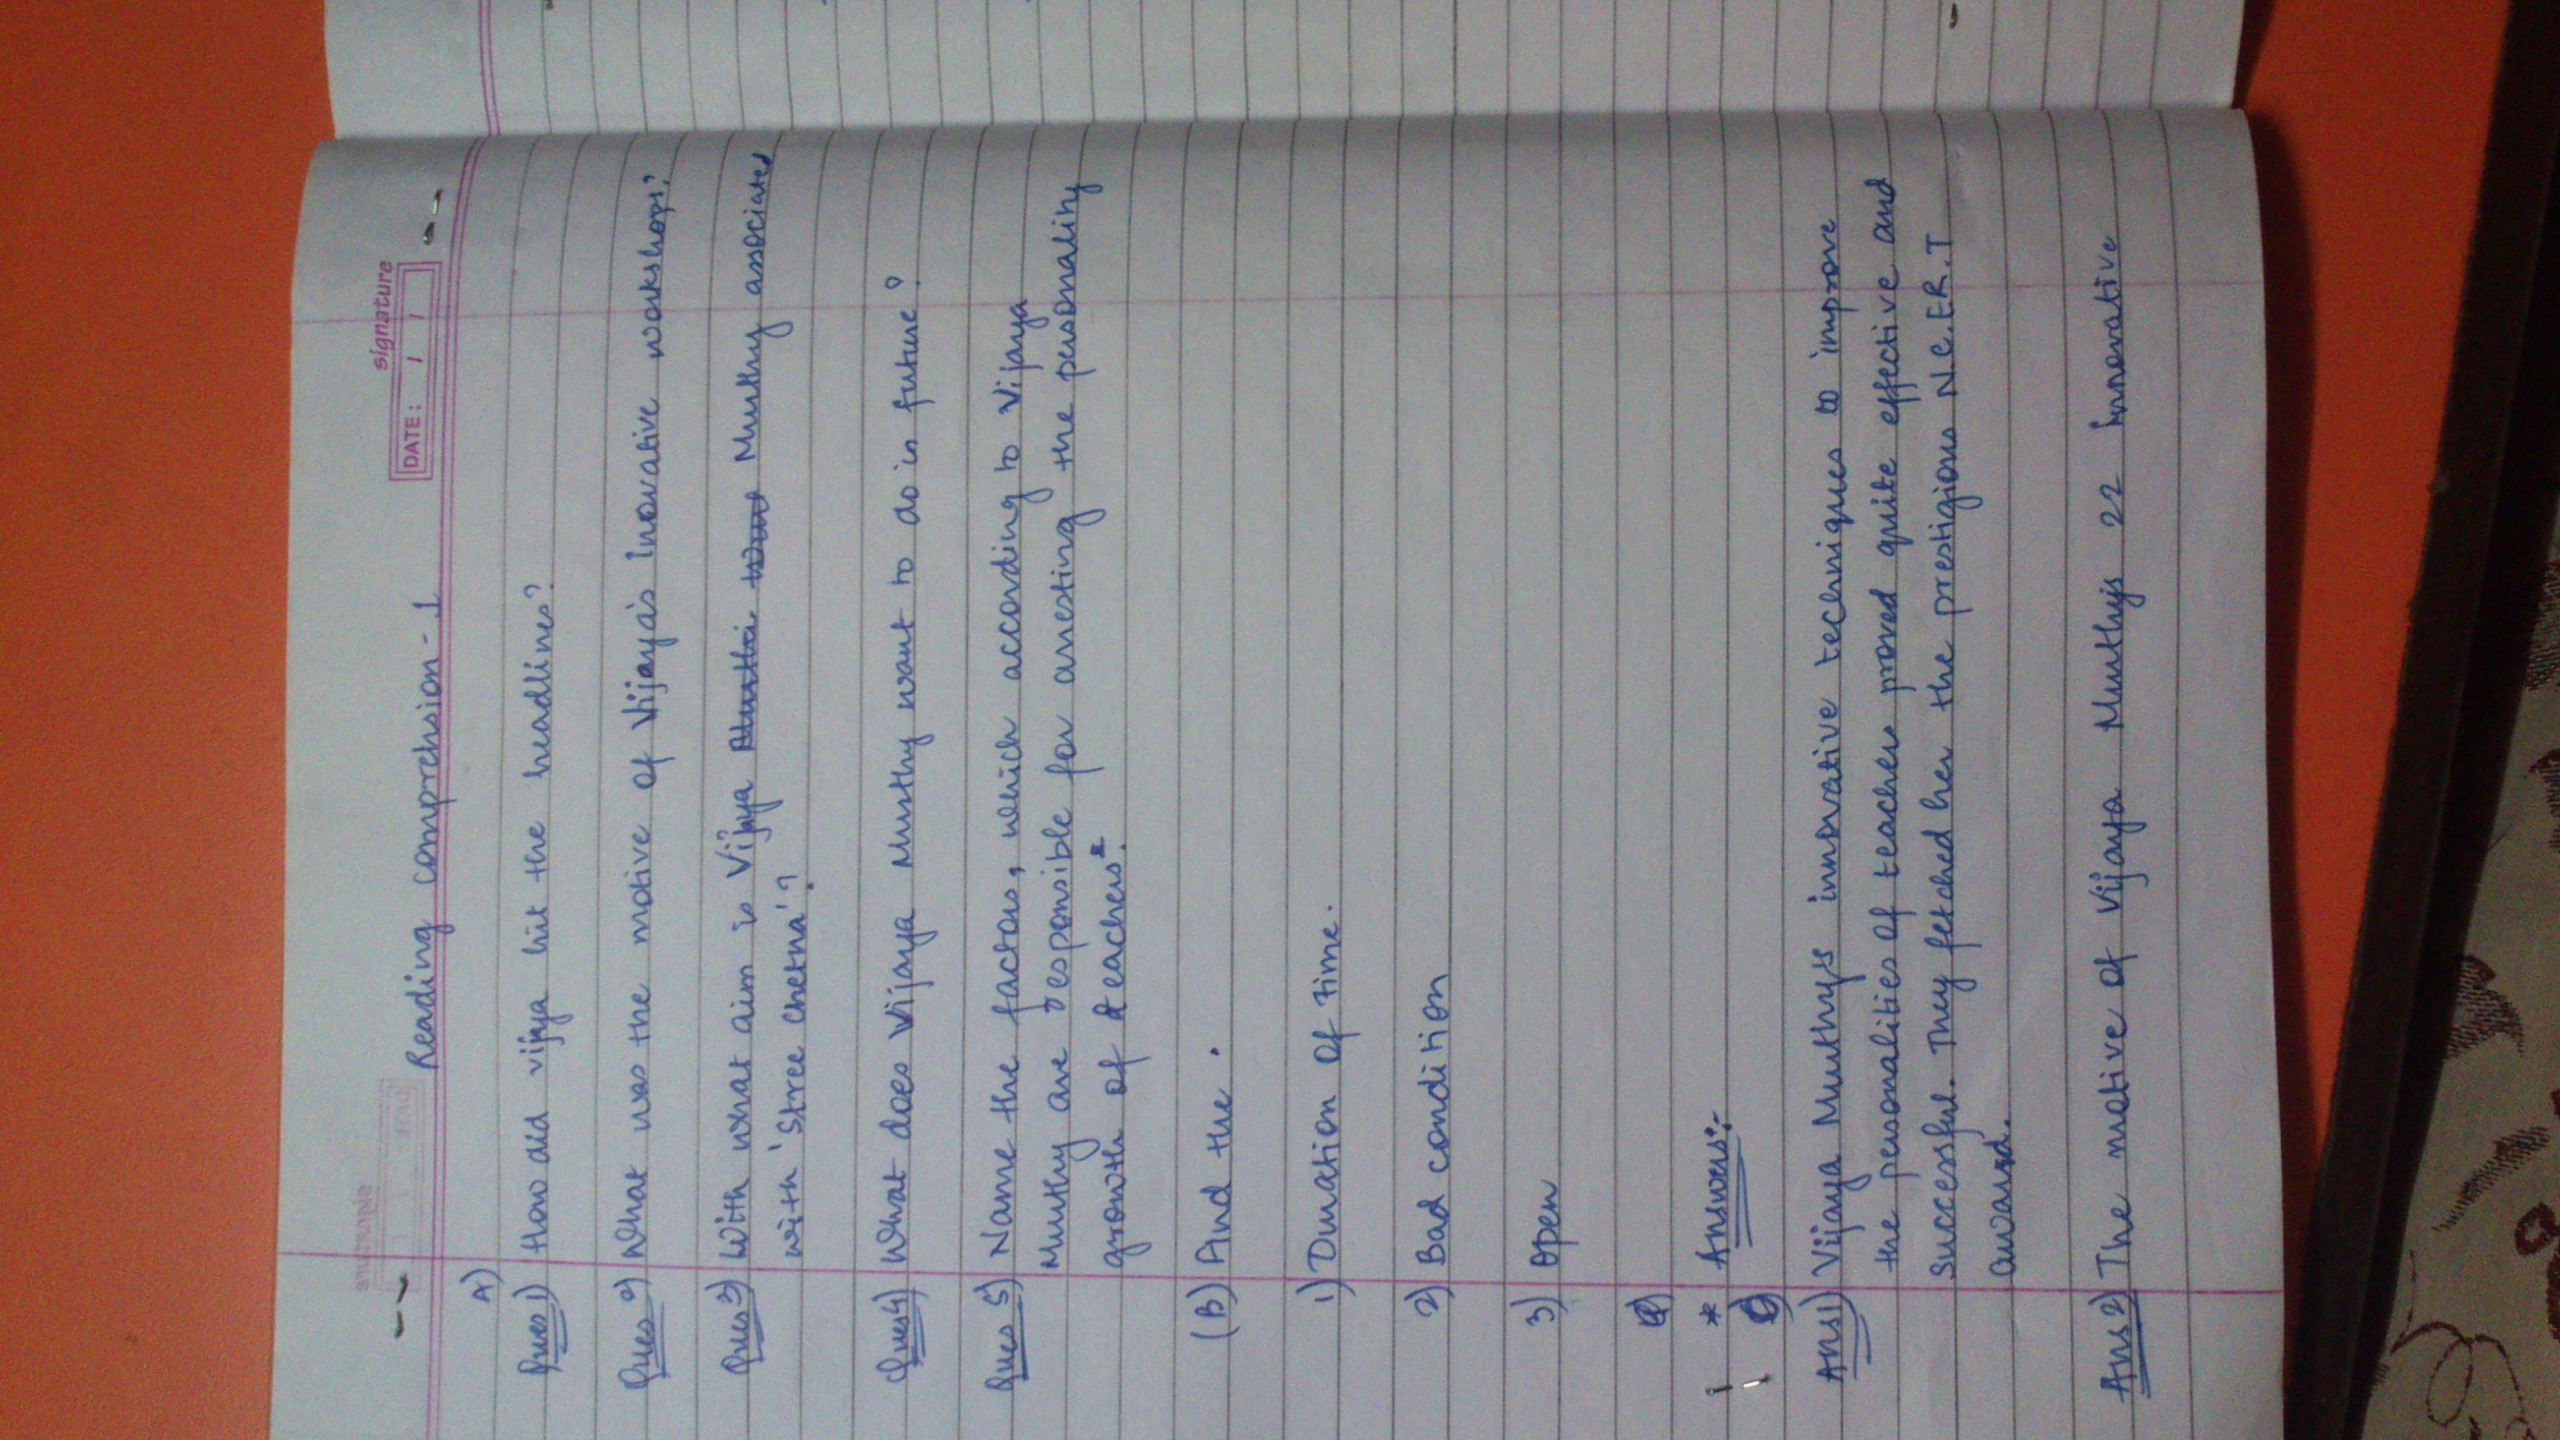 signature
DATE: / /
Reading comprehsion - 1
A)
Ques 1) How did vijya hit the headlines?
Ques 2) What was the motive of Vijaya's Inovative workshops?
Ques 3) With what aim is Vijya Murthy associated
with 'Stree Chetna'?
Ques 4) What does Vijaya Murthy want to do in future?
Ques 5) Name the factors, which according to Vijaya
Murthy are responsible for arresting the personality
growth of teachers?
(B) And the .
1) Duration of time.
2) Bad condition
3) open
* Answers:-
Ans 1) Vijaya Murthy's innovative techniques to improve
the personalities of teachers proved quite effective and
successful. They fetched her the prestigious N.C.ER.T
award.
Ans 2) The motive of Vijaya Murthy's 22 Innovative